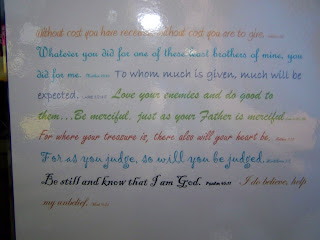 Without cost you have received, without cost you are to give.
Whatever you did for one of these least brothers of mine, you
did for me. To whom much is given, much will be
expected. Love your enemies and do good to
them...Be merciful, just as your Father is merciful
For where your treasure is, there also will your heart be.
For as you judge, so will you be judged.
Be still and know that I am God. Psalm 46:11 I do believe, help
my unbelief.